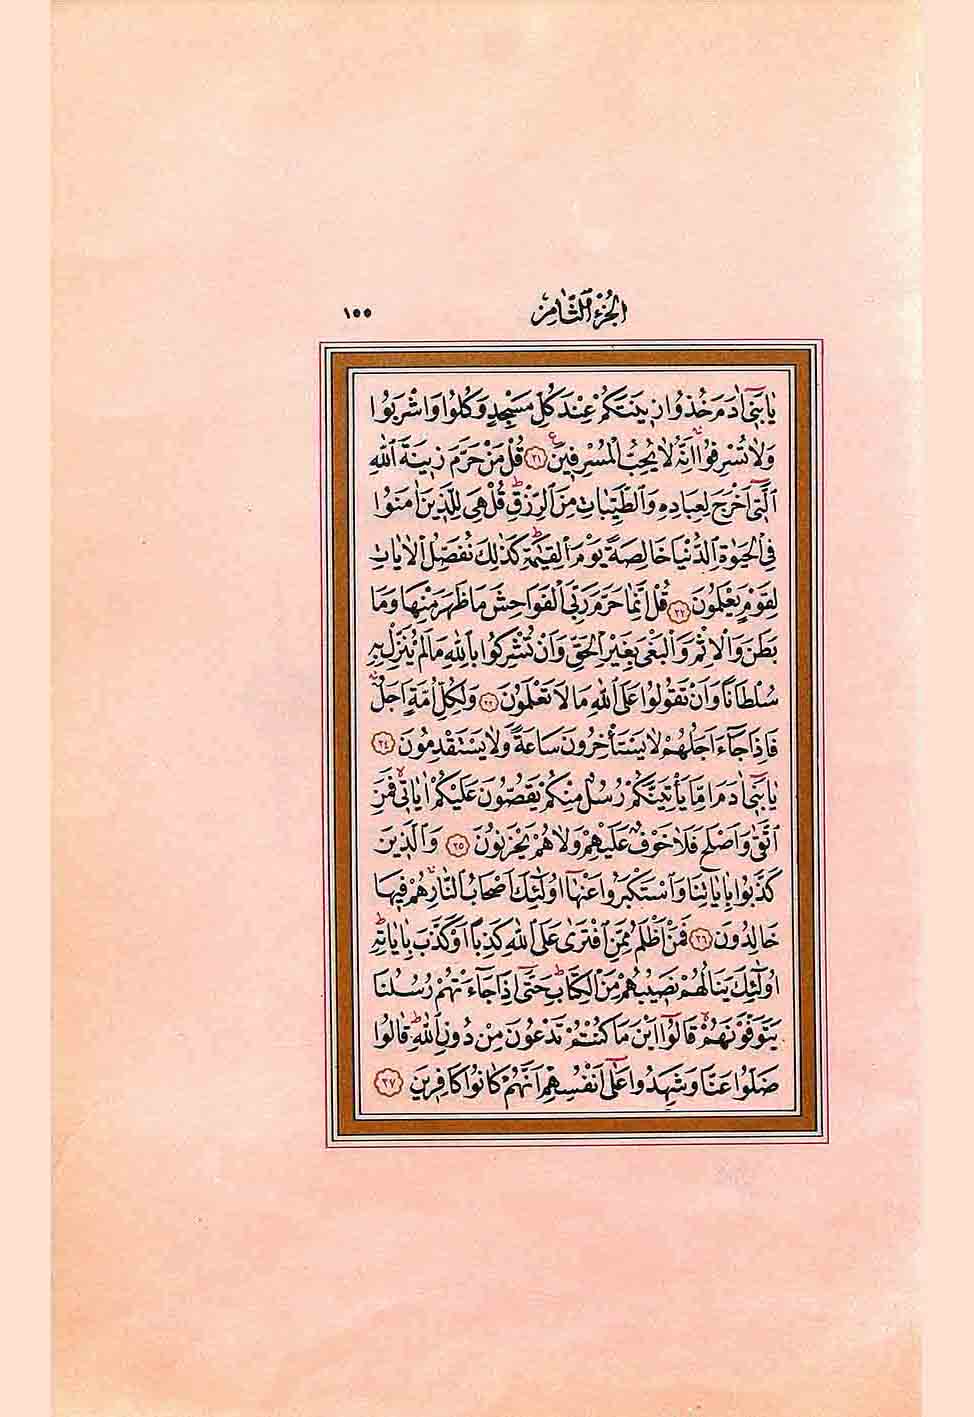 الجزء الثامن ١٥٥
يَا بَنِىٓ اٰدَمَ خُذُوا زِينَتَكُمْ عِنْدَ كُلِّ مَسْجِدٍ وَكُلُوا وَاشْرَبُوا
وَلَا تُسْرِفُوا اِنَّهُ لَا يُحِبُّ الْمُسْرِفِينَ ٣١ قُلْ مَنْ حَرَّمَ زِينَةَ اللّٰهِ
الَّتِىٓ اَخْرَجَ لِعِبَادِهِ وَالطَّيِّبَاتِ مِنَ الرِّزْقِ قُلْ هِىَ لِلَّذِينَ اٰمَنُوا
فِى الْحَيٰوةِ الدُّنْيَا خَالِصَةً يَوْمَ الْقِيٰمَةِ كَذٰلِكَ نُفَصِّلُ الْاٰيَاتِ
لِقَوْمٍ يَعْلَمُونَ ٣٢ قُلْ اِنَّمَا حَرَّمَ رَبِّىَ الْفَوَاحِشَ مَا ظَهَرَ مِنْهَا وَمَا
بَطَنَ وَالْاِثْمَ وَالْبَغْىَ بِغَيْرِ الْحَقِّ وَاَنْ تُشْرِكُوا بِاللّٰهِ مَا لَمْ يُنَزِّلْ بِهِ
سُلْطَانًا وَاَنْ تَقُولُوا عَلَى اللّٰهِ مَا لَا تَعْلَمُونَ ٣٣ وَلِكُلِّ اُمَّةٍ اَجَلٌ
فَاِذَا جَآءَ اَجَلُهُمْ لَا يَسْتَأْخِرُونَ سَاعَةً وَلَا يَسْتَقْدِمُونَ ٣٤
يَا بَنِىٓ اٰدَمَ اِمَّا يَأْتِيَنَّكُمْ رُسُلٌ مِنْكُمْ يَقُصُّونَ عَلَيْكُمْ اٰيَاتِى فَمَنِ
اتَّقٰى وَاَصْلَحَ فَلَا خَوْفٌ عَلَيْهِمْ وَلَا هُمْ يَحْزَنُونَ ٣٥ وَالَّذِينَ
كَذَّبُوا بِاٰيَاتِنَا وَاسْتَكْبَرُوا عَنْهَآ اُولٰٓئِكَ اَصْحَابُ النَّارِ هُمْ فِيهَا
خَالِدُونَ ٣٦ فَمَنْ اَظْلَمُ مِمَّنِ افْتَرٰى عَلَى اللّٰهِ كَذِبًا اَوْ كَذَّبَ بِاٰيَاتِهِ
اُولٰٓئِكَ يَنَالُهُمْ نَصِيبُهُمْ مِنَ الْكِتَابِ حَتّٰىٓ اِذَا جَآءَتْهُمْ رُسُلُنَا
يَتَوَفَّوْنَهُمْ قَالُوٓا اَيْنَ مَا كُنْتُمْ تَدْعُونَ مِنْ دُونِ اللّٰهِ قَالُوا
ضَلُّوا عَنَّا وَشَهِدُوا عَلٰىٓ اَنْفُسِهِمْ اَنَّهُمْ كَانُوا كَافِرِينَ ٣٧